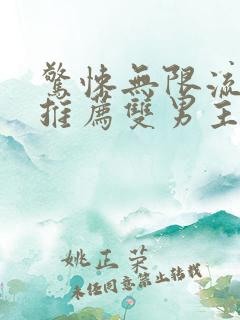 驚悚無限流
推薦雙男主
姚正荣
未经同意禁止转载